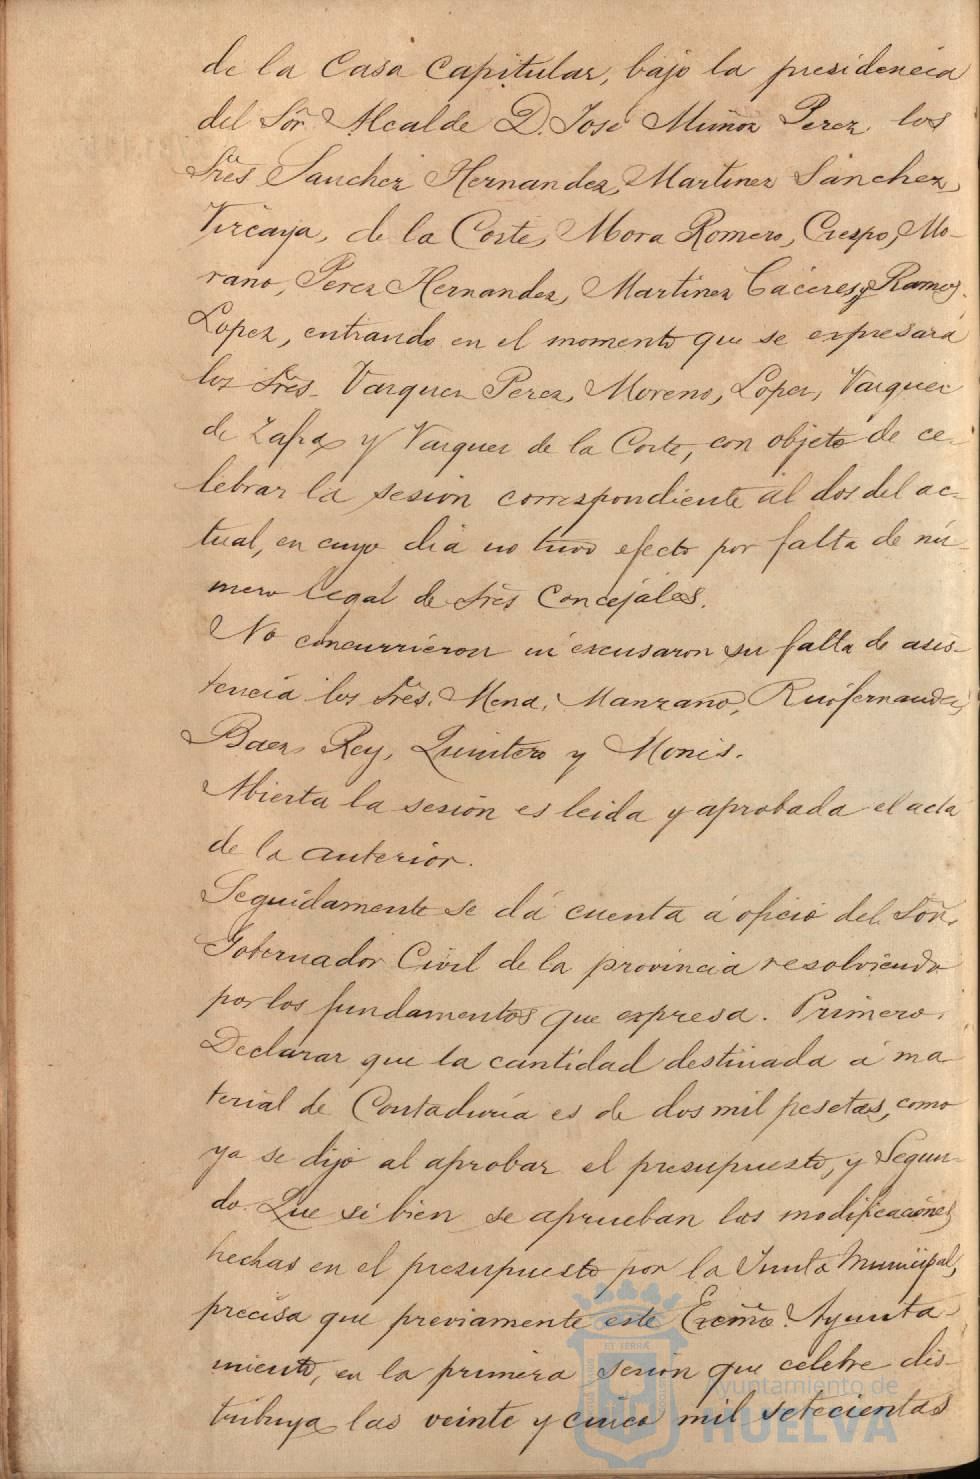 de la Casa Capitular, bajo la presidencia
del Sor. Alcalde D. José Muñoz Perez, los
Sres. Sanchez Hernandez, Martinez Sánchez,
Vizcaya, de la Corte, Mora Romero, Crespo, Mo-
rano, Perez Hernandez, Martinez Cáceres, y Ramos
Lopez, entrando en el momento que se expresará
los Sres. Vazquez Perez, Moreno, Lopez, Vazquez
de Zafra y Vazquez de la Corte, con objeto de ce-
lebrar la sesión correspondiente al dos del ac-
tual, en cuyo dia no tuvo efecto por falta de nú-
mero legal de Sres Concejales.
No concurrieron ni excusaron su falta de asis-
tencia los Sres. Mena, Manzano, Ruifernandez,
Baez, Rey, Quintero y Monis.
Abierta la sesión es leida y aprobada el acta
de la anterior.
Seguidamente se dá cuenta á oficio del Sor.
Gobernador Civil de la provincia resolviendo
por los fundamentos que expresa. Primero.
Declarar que la cantidad destinada á ma
terial de Contaduría es de dos mil pesetas, como
ya se dijo al aprobar el presupuesto, y Segun-
do. Que si bien se aprueban las modificaciónes
hechas en el presupuesto por la Junta Municipal,
precisa que previamente este Excmo. Ayunta-
miento, en la primera sesión que celebre dis-
tribuya las veinte y cinco mil setecientas
Ayuntamiento de
HUELVA